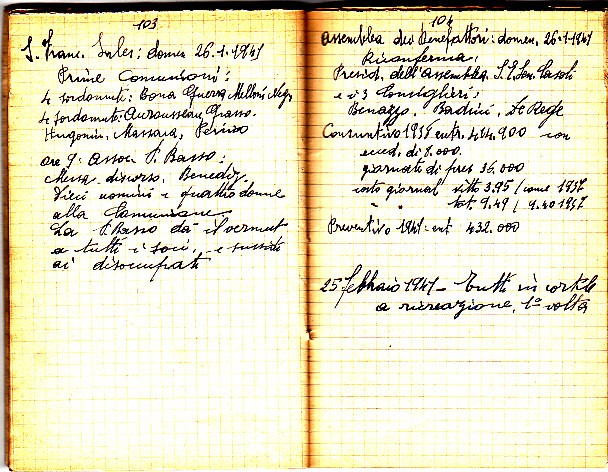 103
S. Franc. Sales: domen. 26.1.1941
Prime Comunioni:
4 sordomuti: Bona Guerra Melloni Negr
4 sordomuti: Aurousseau, Grasso.
Hugonin, Massara, Perino
ore 9: assoc. P. Basso:
Messa, discorso, Benediz.
Dieci uomini e quattro donne
alla Comunione
La P. Basso dà il vermut
a tutti i soci, e sussidi
ai disoccupati
104
assemblea dei Benefattori: domen. 26-1-1941
Riconferma:
Presid. dell'assemblea, Casoli
e i 3 Consiglieri:
Benazzo, Badini, De Rege
Consuntivo 1939 entr. 444.900 con
ecced. di 8.000.
giornate di pres 36.000
costo giornal vitto 3.95 / come 1937
" " tot. 9.49 / 9.40 1937
Preventivo 1941 ent 432.000
25 febbraio 1941 - Tutti in cortile
a ricreazione, 1a volta